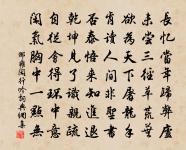 長憶當年歸弊廬
未嘗三徑草荒蕪
欲為天下屠龍手
肯讀人間非聖書
否泰悟來知進退
乾坤見了識親疏
自從會得環中意
閑氣胸中一點無
邵雍閑行吟詞典網集